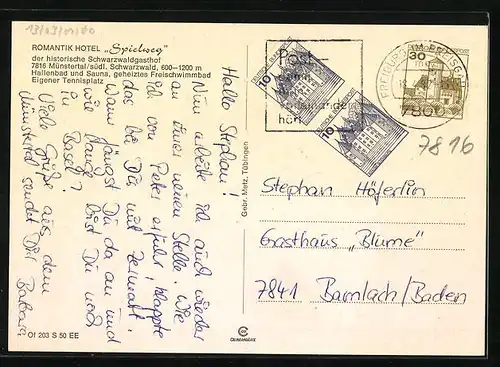 13/03/01/00
ROMANTIK HOTEL „Spielweg"
der historische Schwarzwaldgasthof
7816 Münstertal/südl. Schwarzwald, 600–1200 m
Hallenbad und Sauna, geheiztes Freischwimmbad
Eigener Tennisplatz
Hallo Stephan!
Nun arbeite ich auch wieder
an einer neuen Stelle. Wie
ich von Peter erfuhr, klappte
das bei Dir mit Zermatt.
Wann fängst Du da an und
wie lange bist Du noch
in Basel?
Viele Grüße aus dem
Münstertal sendet Dir Barbara
Of 203 S 50 EE
Gebr. Metz, Tübingen
Post
voneinander
hören
10
10
30
FREIBURG IM BREISGAU
7800
7816
Stephan Höferlin
Gasthaus „Blume"
7841 Bamlach/Baden